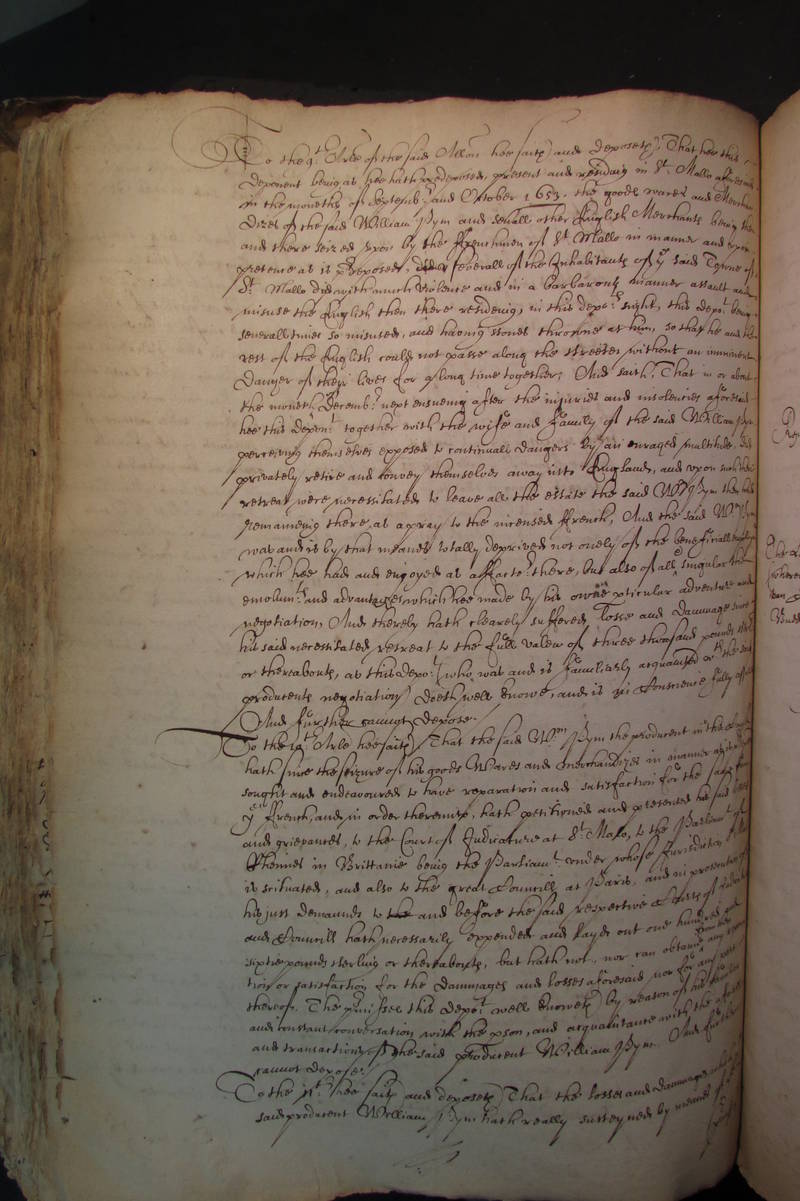 To the 9th. Arle of the said Allon hee saith and deposeth, That hee this
deponent being as hee hath predeposed, present and residing in St. Mallo aforesaid
in the moneths of Septemb.r and October 1653. the goods wares and Merchan
dizes of the said William Pym and severall other English Merchants being then
and there seized upon by the Frenchmen of St. Mallo in manner and upon
pretence as is predeposed, severall of the Inhabitants of ye said Towne of
St. Mallo did with much violence and in a barbarous manner assault and
misuse the English then there residenig, in this depo.ts sight, this depo.t being
severall times so misused, and having stones throwne at him, so that he and the
rest of the English could not passe along the streetes without an imminent
danger of their lives for a long time together; And saith. That in or about
the moneth Decemb.r next ensueing after the injuries and insolencies aforesaid
hee this depon.t together with the wife and family of the said William Pym
perceiving themselves exposed to continuall dangers by an enraged multitude, did
privately retire and convey themselves away into England, and upon such their
retreat were necessitated to leave all the estate the said Wm Pym then had
remaineing there, as a pray to the incensed French, And the said Wm Pym
was and is by that meanes totally deprived not onely of the beneficiall
which hee had and enjoyed as affacto.r there, but also of all singular the
emolum.ts and advantages, which hee made by his owne pticular adventure and
negotiation, And thereby hath clearely suffered losse and dammage since
his said necessitated retreat to the full valew of three thousand pounds
or thereabouts, as this Depo.t (who was and is familiarly acquainted wth the said
producents negotiation) doeth well knowe, and is in Conscience fully
And further cannot depose.
To the 10t. Arle hee saith That the said Wm Pym the producent
hath since the seizure of his goods Wares and Merchandizes in manner
sought and endeavoured to have reparation and satisfaction for the same from
ye French, and in order thereunto, hath petitioned and presented his said
and grievances, to the Court of Judicature at St. Malo, to the Parliam.t of
Rhennes in Brittanie being the Parliam.t under whose Jurisdiction
is scituated, and also to the great Councill at Paris, and in prosecuting
his just demaunds to and before the said respective Courts of
and Councill hath necessarily expended and layd out one hundred and
sixtie pounds sterling or thereabouts, but hath not, nor can obtaine any
tion or satisfaction for the dammages and losses aforesaid nor for any part
thereof. The p.misses this depo.t well knoweth by reason of his
and constant conversation with the pson, and acquaintance with the
and transactions of the said producent William Pym. And further
cannot depose.
To the 11t. hee saith and deposeth That the losses and dammages
said producent William Pym hath really susteyned by meanes of